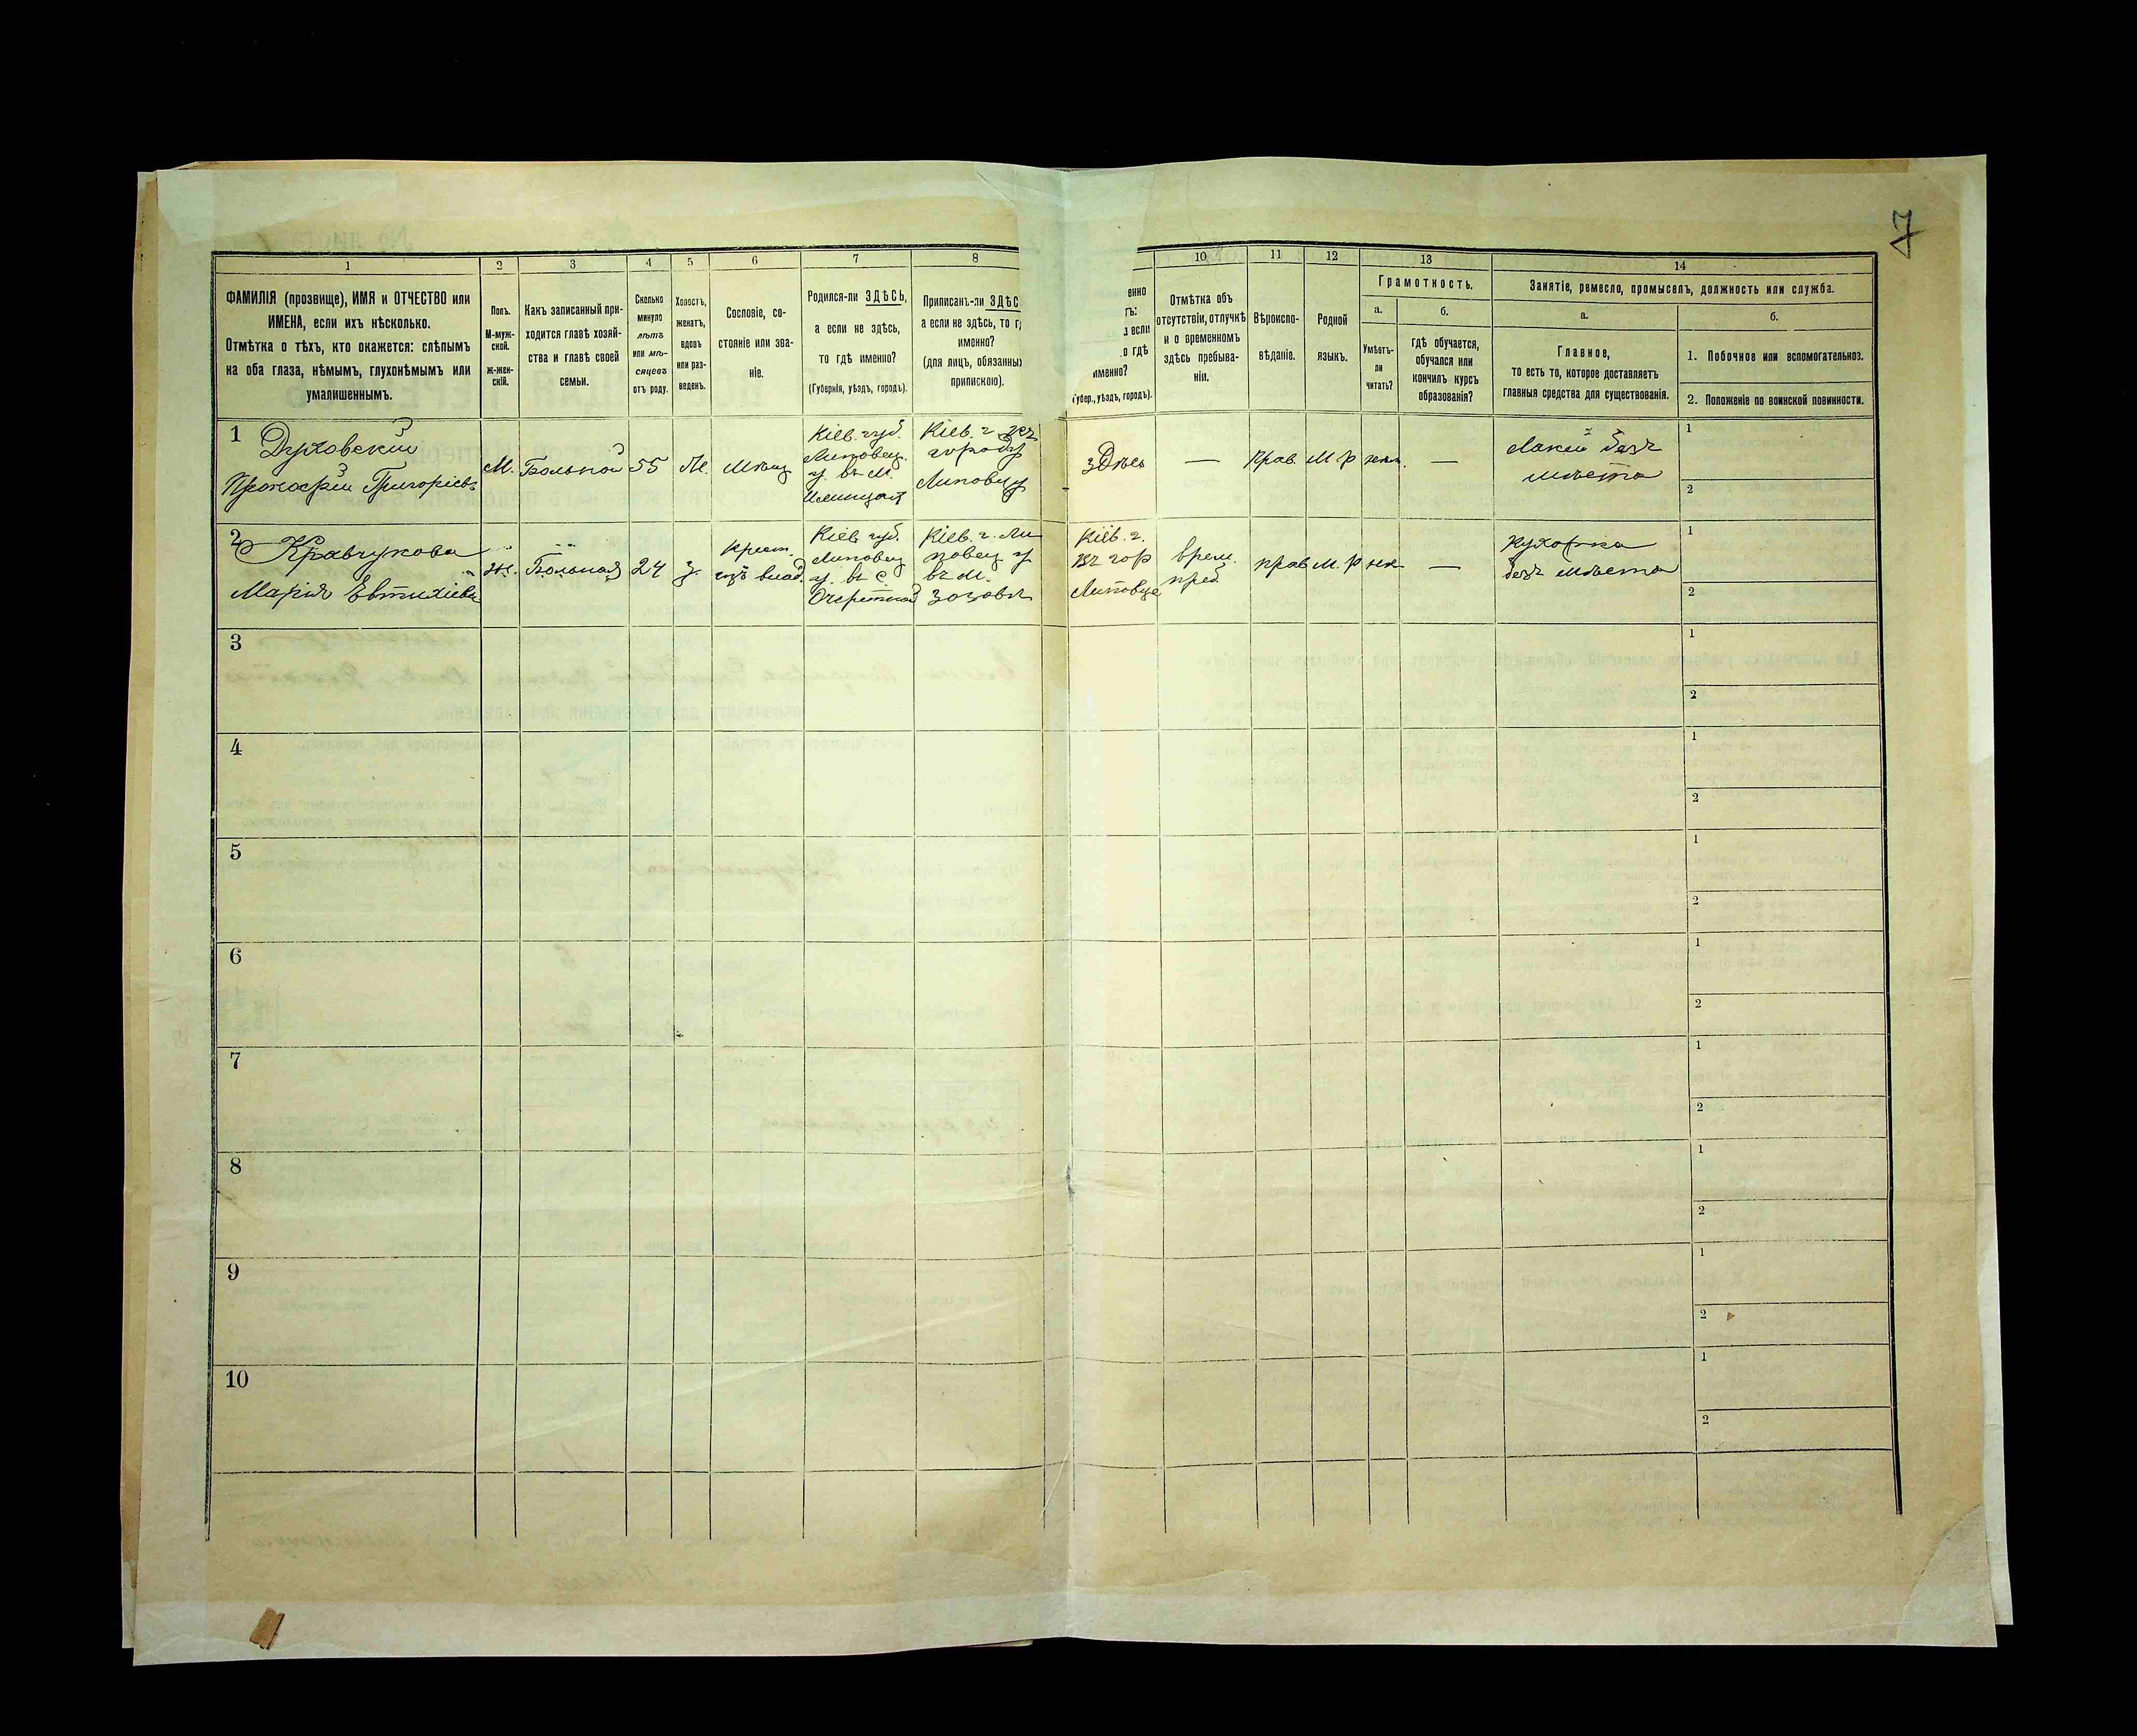 7
1
2
3
4
5
6
7
8
10
11
12
13
14
ФАМИЛІЯ (прозвище), ИМЯ и ОТЧЕСТВО или
ИМЕНА, если ихъ нѣсколько.
Отмѣтка о тѣхъ, кто окажется: слѣпымъ
на оба глаза, нѣмымъ, глухонѣмымъ или
умалишеннымъ.
Полъ.
М-муж-
ской.
ж-жен-
скій.
Какъ записанный при-
ходится главѣ хозяй-
ства и главѣ своей
семьи.
Сколько
минуло
лѣтъ
или мѣ-
сяцевъ
отъ роду.
Холостъ,
женатъ,
вдовъ
или раз-
веденъ.
Сословіе, со-
стояніе или зва-
ніе.
Родился-ли ЗДѢСЬ,
а если не здѣсь,
то гдѣ именно?
(Губернія, уѣздъ, городъ).
Приписанъ-ли ЗДѢС
а если не здѣсь, то г
именно?
(для лицъ, обязанны
припискою).
енно
гъ:
если
о гдѣ
именно?
Губер., уѣздъ, городъ).
Отмѣтка объ
отсутствіи, отлучкѣ
и о временномъ
здѣсь пребыва-
ніи.
Вѣроиспо-
вѣданіе.
Родной
языкъ.
Грамотность.
а.
Умѣетъ-
ли
читать?
б.
гдѣ обучается,
обучался или
кончилъ курсъ
образованія?
Занятіе, ремесло, промыселъ, должность или служба.
а.
Главное,
то есть то, которое доставляетъ
главныя средства для существованія.
б.
1. Побочное или вспомогательноэ.
2. Положеніе по воинской повинности.
1
Духовскій
Григоріев
М.
Больной
55
Мѣщ
Кіев. губ.
Липовец.
у. въ м.
Кіев. г
городу
Липовцу
здѣсь
—
Прав.
М. р
—
Лакей безъ
мѣста
1
2
2
Кравчукова
Марія Евтихіева
ж.
Больная
24
з.
крест.
влад.
Кіев. губ.
Липовец
у. въ с.
Очеретной
Кіев. г. Ли
повец у
въ м.
Зозовъ
Кіев. г.
въ гор
Липовце
врем.
преб
прав
М. р
—
кухарка
безъ мѣста
1
2
3
1
2
4
1
2
5
1
2
6
1
2
7
1
2
8
1
2
9
1
2
10
1
2